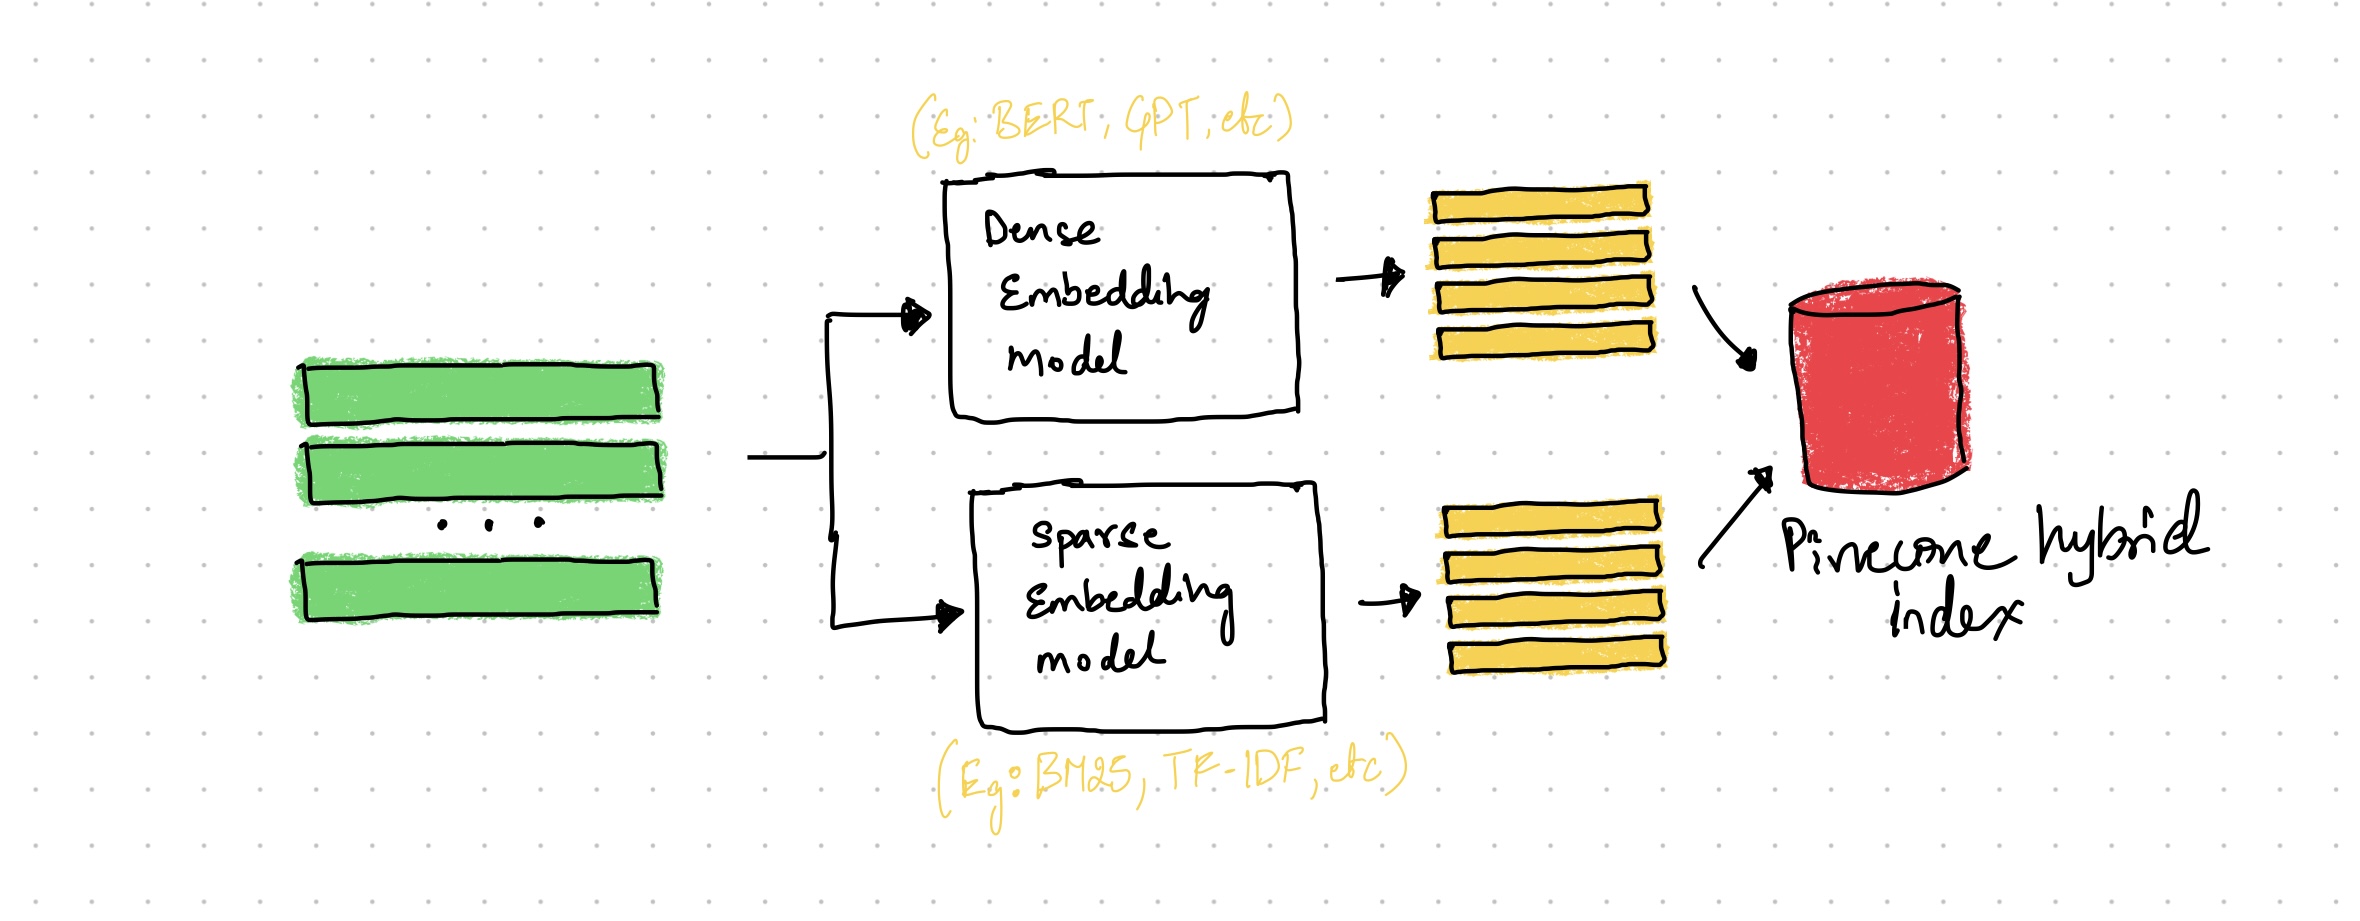 (Eg: BERT, GPT, etc)
Dense
Embedding
Model
Sparse
Embedding
model
(Eg: BM25, TF-IDF, etc)
Pinecone hybrid
index